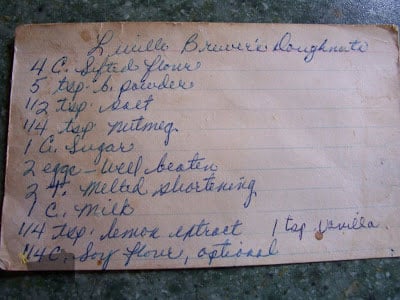 Lucille Brewer's Doughnuts
4 C. Sifted flour
5 tsp. b. powder
1/2 tsp. salt
1/4 tsp nutmeg
1 C. Sugar
2 eggs - well beaten
2 T. melted shortening
1 C. Milk
1/4 tsp. lemon extract 1 tsp vanilla.
1/4 C. Soy flour, optional